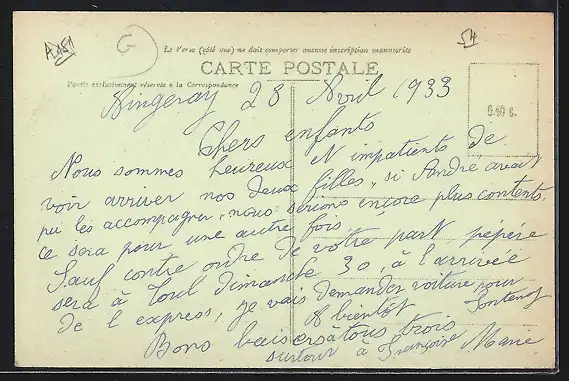 Le Verso (côté vue) ne doit comporter aucune inscription manuscrite
CARTE POSTALE
Partie exclusivement réservée à la Correspondance
28 Avril 1933
Chers enfants
Nous sommes heureux N impatients de
voir arriver nos deux filles, si André avait
pu les accompagner, nous serions encore plus contents.
ce sera pour une autre fois.
Sauf contre ordre de votre part pépère
sera à Toul dimanche 30, à l'arrivée
De l express, je vais demander voiture pour
A bientôt Fontenoy
Bons baisers à tous trois
surtout à Françoise Marie